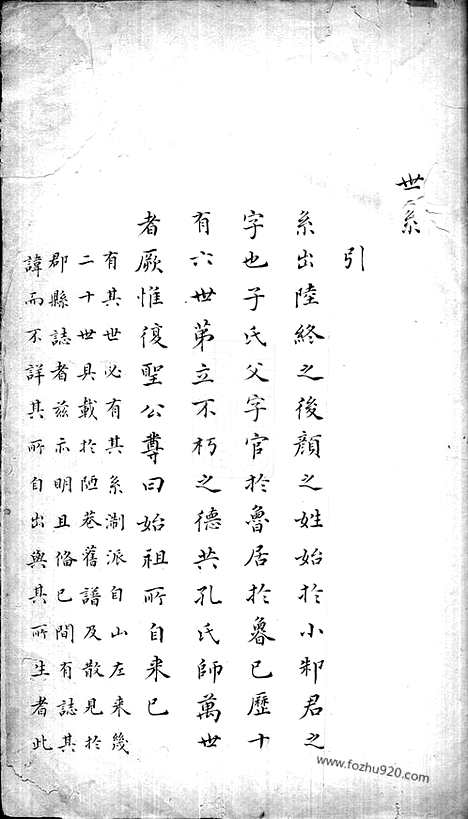 世系
引
系出陸終之後顔之姓始於小邾君之
字也子氏父字官於魯居於魯已歷十
有六世第立不朽之德共孔氏師萬世
者厥惟復聖公尊曰始祖所自来已
有其世必有其系淛派自山左来幾
二十世具載於陋巷舊譜及散見於
郡縣誌者兹示明且偹已間有誌其
諱而不詳其所自出與其所生者此
www.fozhu920.com